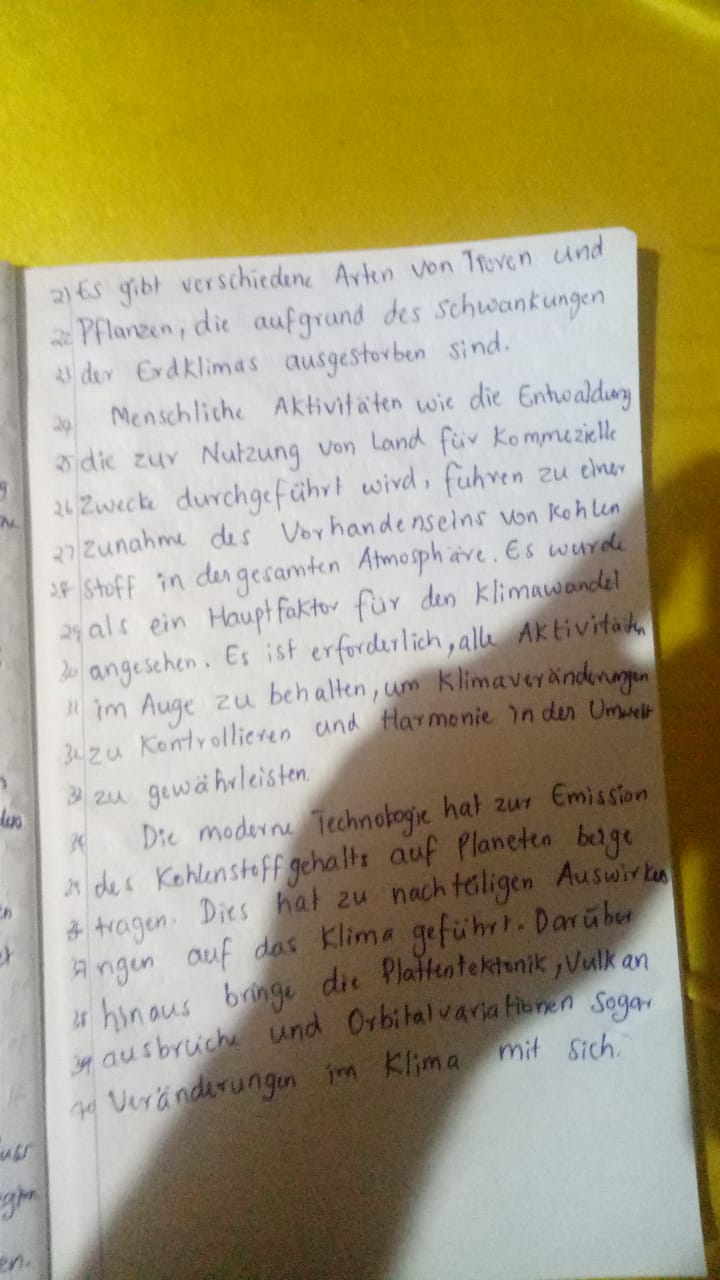 21) Es gibt verschiedene Arten von Tieven und
22 Pflanzen, die aufgrund des Schwankungen
23 der Erdklimas ausgestorben sind.
24 Menschliche Aktivitäten wie die Entwaldung
25 die zur Nutzung von Land für Kommezielle
26 Zwecke durchgeführt wird, führen zu einer
27 Zunahme des Vorhandenseins von Kohlen
28 stoff in der gesamten Atmosphäre. Es wurde
29 als ein Hauptfaktor für den Klimawandel
30 angesehen. Es ist erforderlich, alle Aktivitäten
31 im Auge zu behalten, um Klimaveränderungen
32 zu Kontrollieren und Harmonie in der Umwelt
33 zu gewährleisten.
34 Die moderne Technologie hat zur Emission
35 des Kohlenstoffgehalts auf Planeten beige
36 tragen. Dies hat zu nachteiligen Auswirku
37 ngen auf das Klima geführt. Darüber
38 hinaus bringe die Plattentektonik, Vulkan
39 ausbrüche und Orbitalvariationen sogar
40 Veränderungen im Klima mit sich.